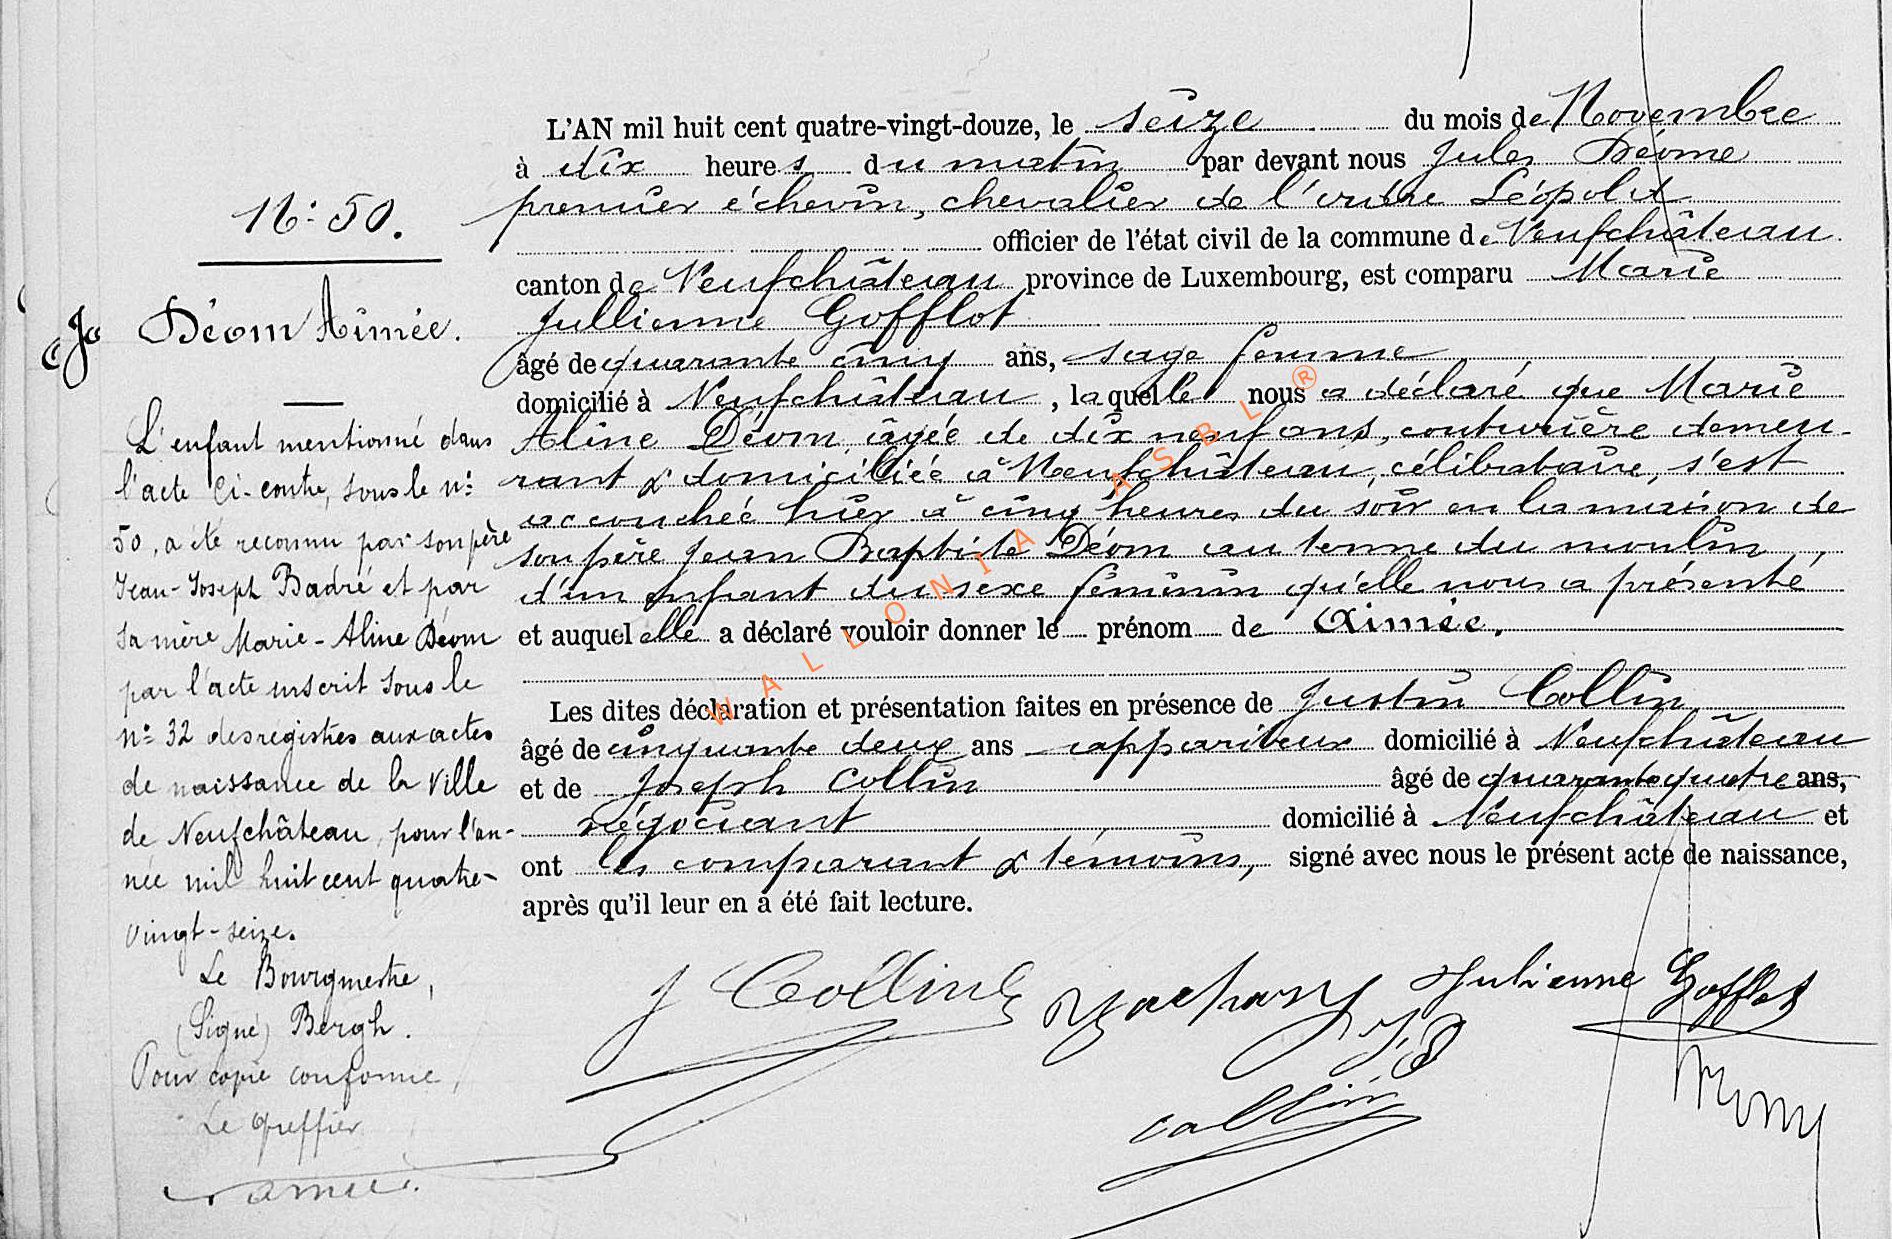 N: 50.
Déom Aimée.
L'enfant mentionné dans
l'acte ci-contre, sous le n:
50, a été reconnu par son père
Jean-Joseph Badré et par
sa mère Marie-Aline Déom
par l'acte inscrit sous le
n: 32 des registres aux actes
de naissance de la Ville
de Neufchâteau, pour l'an-
née mil huit cent quatre-
vingt-seize.
Le Bourgmestre,
(Signé) Bergh.
Pour copie conforme,
Le Greffier
L'AN mil huit cent quatre-vingt-douze, le seize du mois de Novembre
à dix heures du matin par devant nous Jules Déome
premier échevin, chevalier de l'ordre Léopold
officier de l'état civil de la commune de Neufchâteau
canton de Neufchâteau province de Luxembourg, est comparu Marie
Jullienne Gofflot
âgé de quarante cinq ans, sage femme
domicilié à Neufchâteau, laquelle nous a déclaré que Marie
Aline Déom, âgée de dix neuf ans, couturière demeu-
rant & domiciliée à Neufchâteau, célibataire, s'est
accouchée hier à cinq heures du soir en la maison de
son père Jean Baptiste Déom au terme du moulin,
d'un enfant du sexe féminin qu'elle nous a présenté
et auquel elle a déclaré vouloir donner le prénom de Aimée.
Les dites déclaration et présentation faites en présence de Justin Collin
âgé de cinquante deux ans appariteur domicilié à Neufchâteau
et de Joseph Collin âgé de quarante quatre ans,
négociant domicilié à Neufchâteau et
ont les comparant & témoins, signé avec nous le présent acte de naissance,
après qu'il leur en a été fait lecture.
J Collin Julienne Gofflot
Collin
WALLONIA ASBL ®